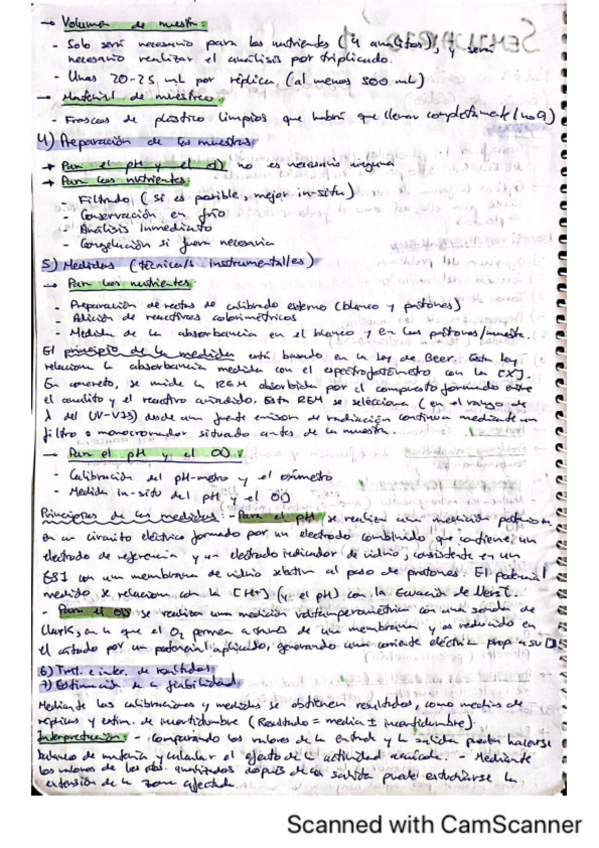 → Volumen de muestra:
- Solo será necesario para los nutrientes (4 analitos), y será
necesario realizar el análisis por triplicado.
- Unas 20-25 mL por réplica (al menos 500 mL)
→ Material de muestreo:
- Frascos de plástico limpios que habrá que llenar completamente
4) Preparación de las muestras
→ Para el pH y el OD no es necesario ninguna
→ Para los nutrientes:
- Filtrado (si es posible, mejor in-situ)
- Conservación en frío
- Análisis inmediato
- Congelación si fuera necesaria
5) Medidas (técnica/s instrumental/es)
→ Para los nutrientes:
- Preparación de rectas de calibrado externo (blanco y patrones)
- Adición de reactivos colorimétricos
- Medida de la absorbancia en el blanco y en los patrones/muestra.
El principio de la medida está basado en la Ley de Beer. Esta ley
relaciona la absorbancia medida con el espectrofotómetro con la [X].
En concreto, se mide la REM absorbida por el compuesto formado entre
el analito y el reactivo añadido. Esta REM se selecciona (en el rango de
λ del UV-VIS) desde una fuente emisora de radiación continua mediante un
filtro o monocromador situado antes de la muestra.
→ Para el pH y el OD:
- Calibración del pH-metro y el oxímetro
- Medida in-situ del pH y el OD
Principios de las medidas: - Para el pH se realiza una medición
en un circuito eléctrico formado por un electrodo combinado que contiene un
electrodo de referencia y un electrodo indicador de vidrio, consistente en un
ESI con una membrana de vidrio selectiva al paso de protones. El potencial
medido se relaciona con la [H+] (y el pH) con la Ecuación de Nerst.
- Para el OD se realiza una medición voltamperométrica con una sonda de
Clark, en la que el O₂ permea a través de una membrana y es reducido en
el cátodo por un potencial aplicado, generando una corriente eléctrica prop a su []
6) Trat. e inter. de resultados
7) Estimación de la fiabilidad
Mediante las calibraciones y medidas se obtienen resultados, como medias de
réplicas y estim. de incertidumbre (Resultado = media ± incertidumbre).
Interpretación: - Comparando los valores de la entrada y la salida pueden hacerse
balance de materia y calcular el efecto de la actividad - Mediante
los valores de los ptos. después de la salida puede estudiarse la
extensión de la zona afectada.
Scanned with CamScanner